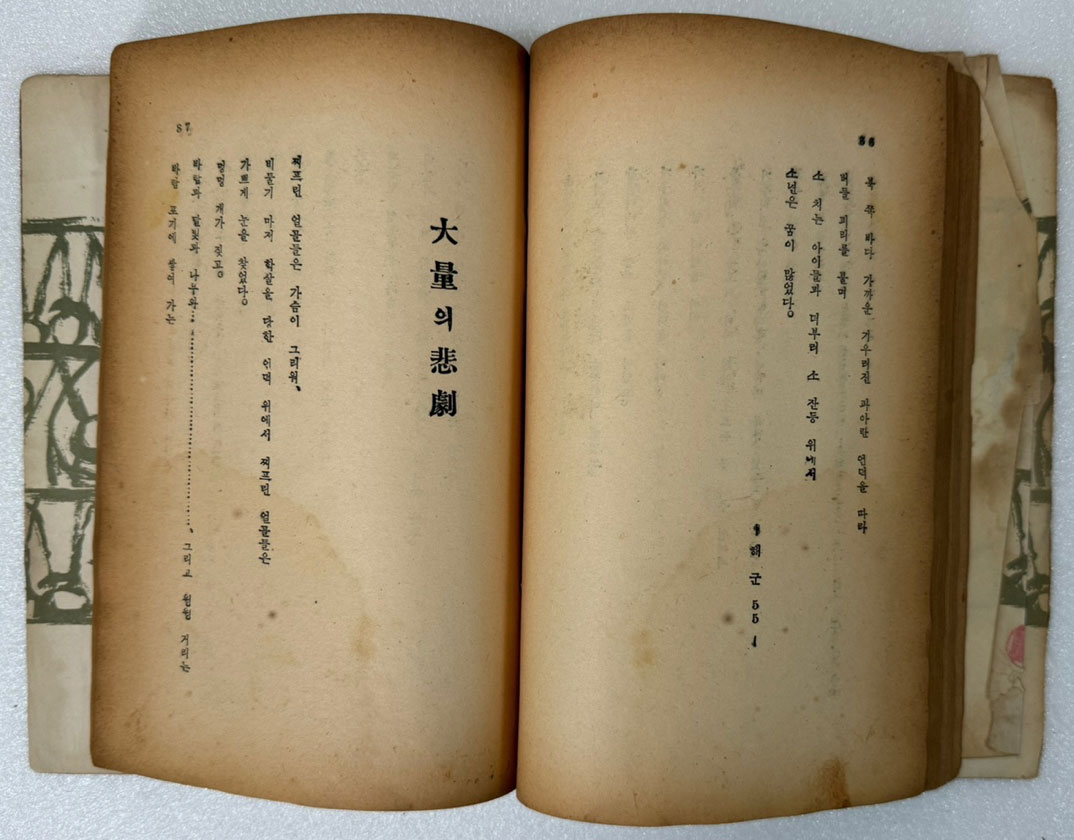 86
목 쪽 바다 가까운 기우러진 파아란 언덕을 따라
버들 피리를 불며
소 치는 아이들과 더부러 소 잔등 위에서
소년은 꿈이 많었다。
해군 55
87
大量의 悲劇
찌프린 얼골들은 가슴이 그리워、
비둘기 마저 학살을 당한 언덕 위에서 찌프린 얼골들은
가쁘게 눈을 찾었다。
멍멍 개가 짖고。
바람과 달빛과 나동와………………………、그리고 윙윙 거리는
바람 포기에 쌓여 가는